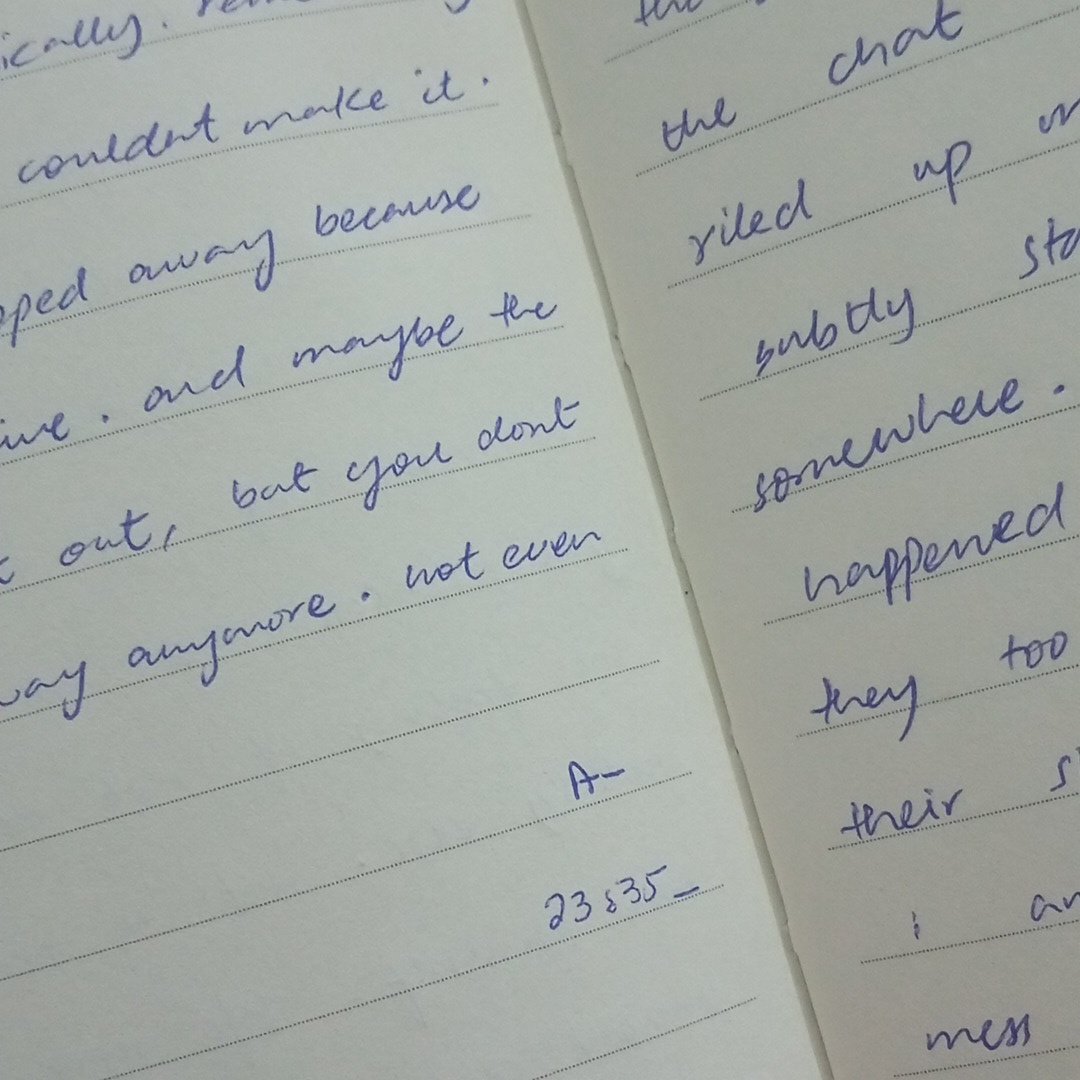 couldnt make it.
away because
. and maybe the
out, but you dont
anymore. not even
A-
23:35_
the chat
riled up
subtly
somewhere.
happened
they too
their
i
mess